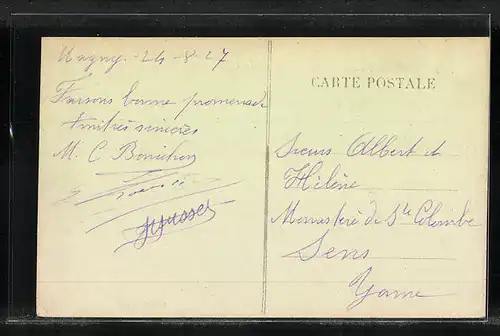 Magny - 24-8-27
Faisons bonne promenade
Amitiés sincères
M. C Bonichon
CARTE POSTALE
Sœurs Albert et
Hélène
Monastère de Ste Colombe
Sens
Yonne